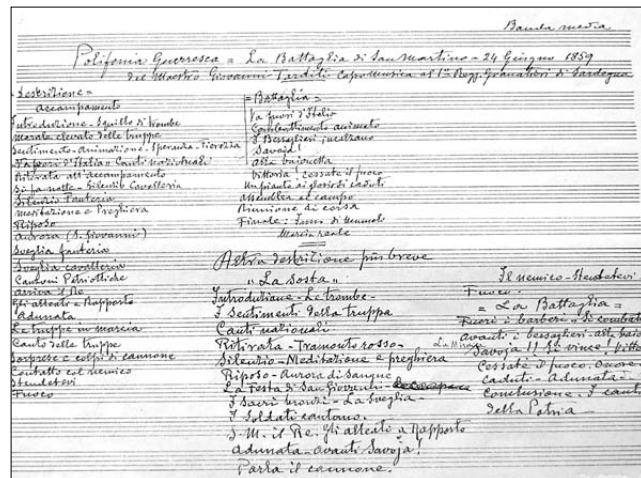 Banda media
Polifonia Guerresca = La Battaglia di San Martino - 24 Giugno 1859
del Maestro Giovanni Tarditi Capomusica al 1º Regg. Granatieri di Sardegna
Descrizione =
Accampamento
Introduzione - Squillo di trombe
Morale elevato delle truppe
Sentimento - Animazione - Speranza - Fierezza
Va fuori d'Italia o Canti nazionali
Ritirata all'accampamento
Si fa notte - Silenzio Cavalleria
Silenzio Fanteria
Meditazione e Preghiera
Riposo
Aurora (S. Giovanni)
Sveglia fanteria
Sveglia cavalleria
Canzoni Patriottiche
Arriva il Re
Gli alleati a Rapporto
Adunata
Le truppe in marcia
Canto delle truppe
Sorprese e colpi di cannone
Contatto col nemico
Stendetevi
Fuoco
= Battaglia =
Va fuori d'Italia
Combattimento animato
I Bersaglieri incalzano
Savoia!
alla baionetta
Vittoria! cessate il fuoco
Un pianto ai gloriosi caduti
Assemblea al campo
Riunione di corsa
Finale: Inno di Mameli
Marcia reale
Altra descrizione più breve
"La sosta"
Introduzione - Le trombe -
I Sentimenti della truppa
Canti nazionali
Ritirata - Tramonto rosso -
Silenzio - Meditazione e preghiera
Riposo - Aurora di Sangue
La Festa di San Giovanni -
I sacri bronzi - La Sveglia -
I Soldati cantano.
S. M. il Re. Gli alleati a Rapporto
Adunata - avanti Savoja!
Parla il cannone.
Il nemico - Stendetevi
Fuoco.
= La Battaglia =
Fuori i barbari - Si combatte
Avanti i bersaglieri - alla baio
Savoja!! Si vince! Vitto
Cessate il fuoco. Onore
Caduti - Adunata -
Conclusione. I canti
della Patria -